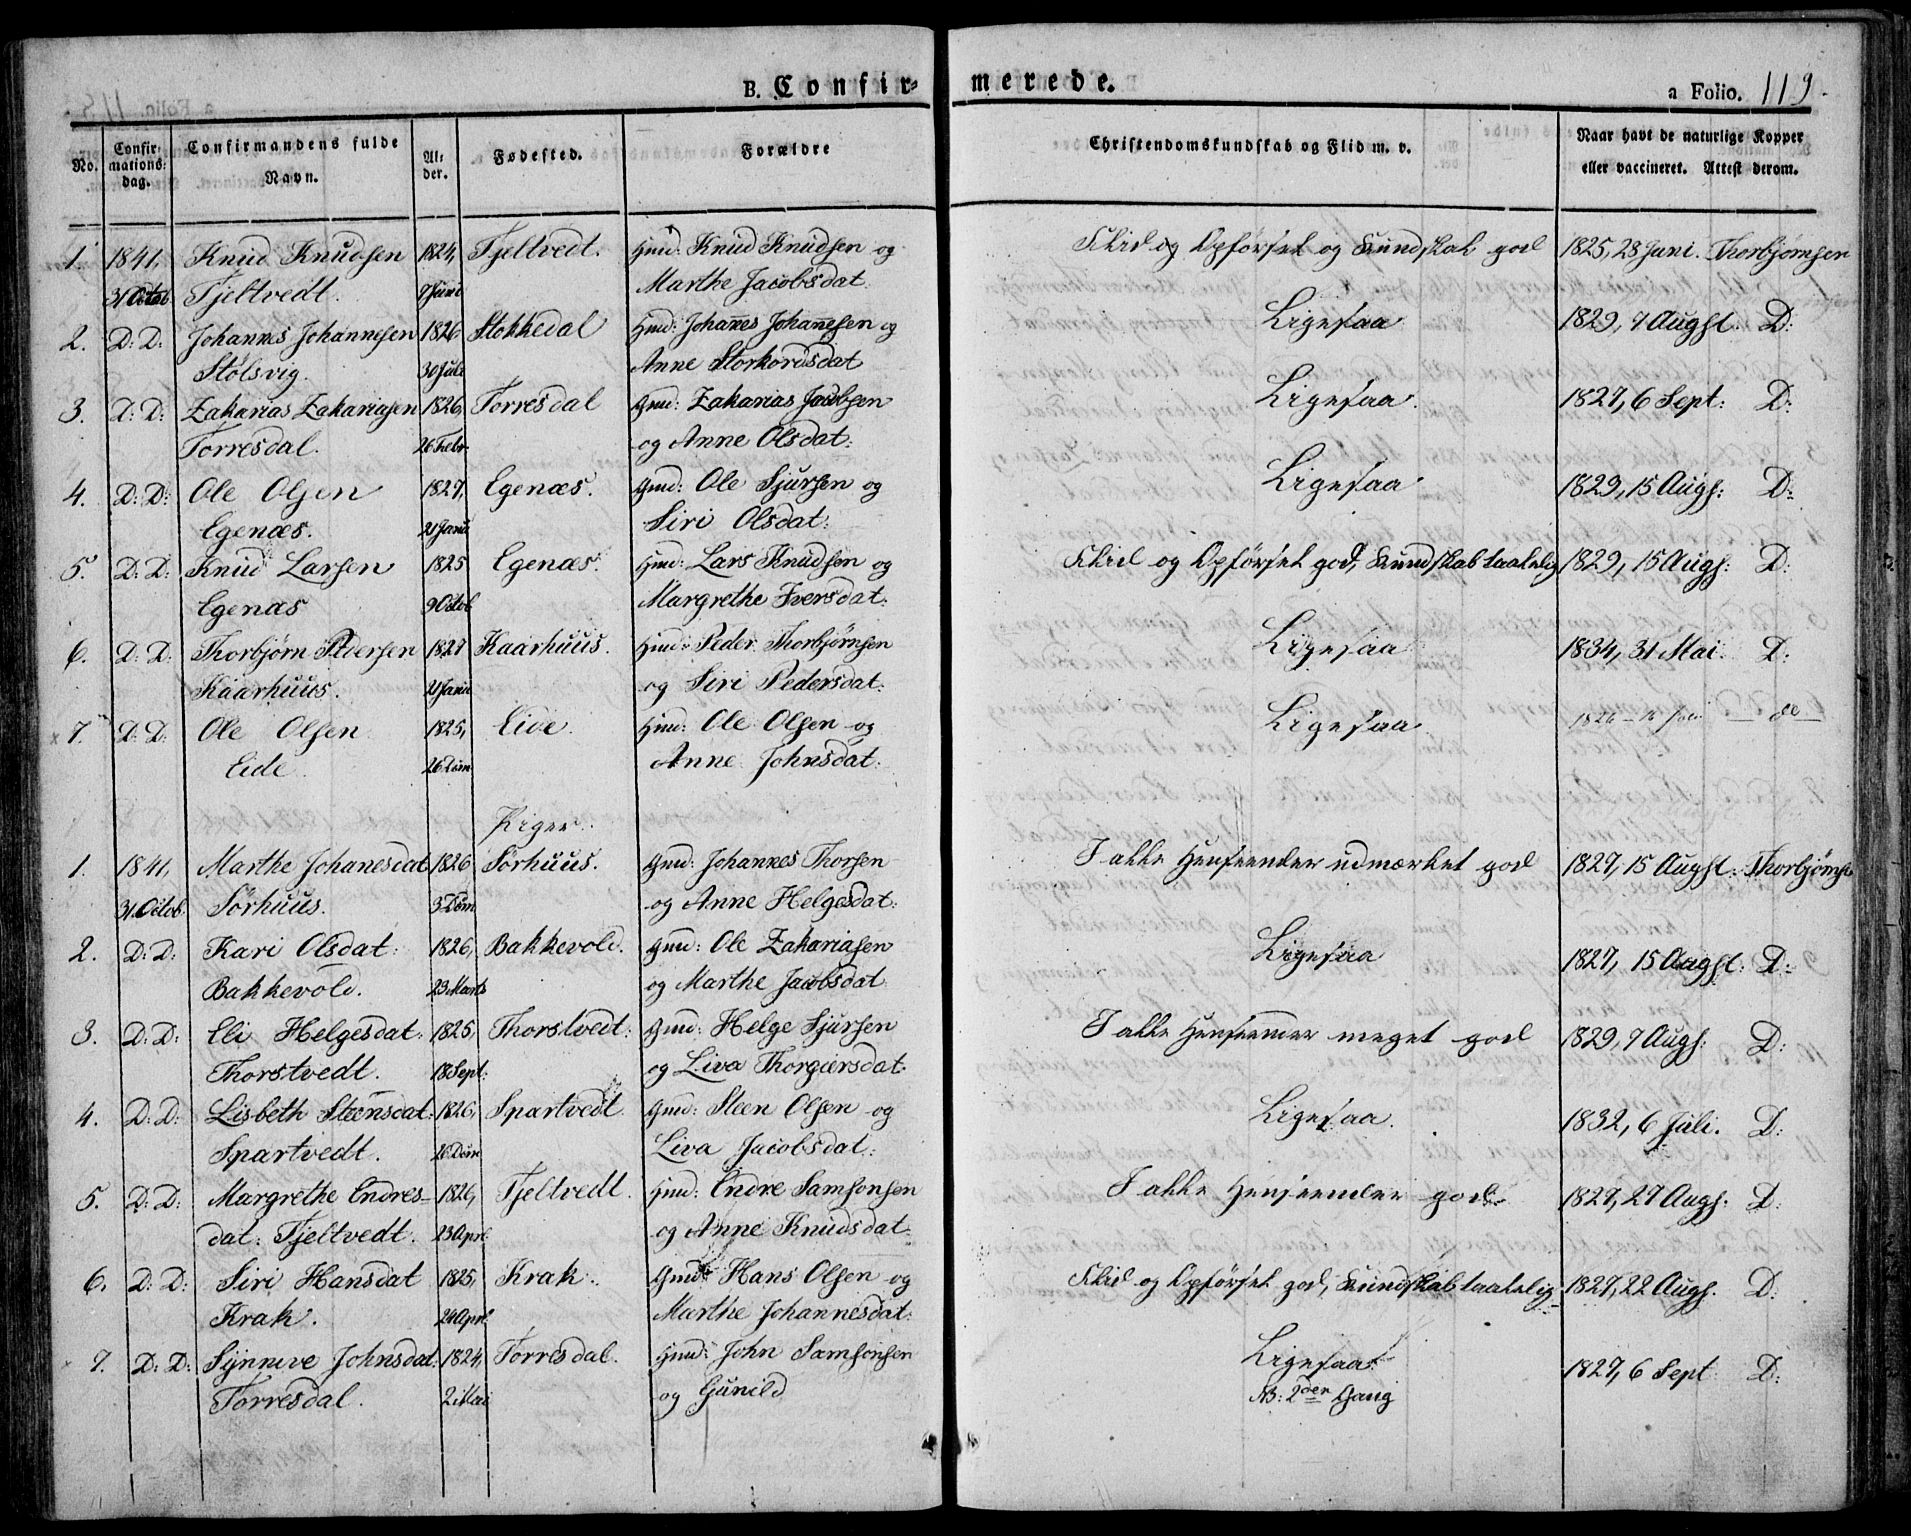 B. Confirmerede. a Folio. 119.
No. Confirmations-dag. Confirmandens fulde Navn. Alder. Fødested. Forældre Christendomskundskab og Flid m. v. Naar havt de naturlige Kopper eller vaccineret. Attest derom.
1. 1841, Knud Knudsen 1824, Tjeltvedt. Gmd: Knud Knudsen og Flid og Opførsel og Kundskab god 1825, 28 Juni. Thorbjørnsen
31 Octob. Tjeltvedt. 7 Juni Marthe Jacobsdat
2. D: D: Johannes Johannesen 1826 Stokkedal Hmd: Johannes Johannesen og Ligesaa 1829, 7 Augst. D:
Stølsvig. 30 Juli Anne Storkordsdat
3. D: D: Zakarias Zakariasen 1826, Torresdal Gmd: Zakarias Jacobsen Ligesaa. 1827, 6 Sept: D:
Torresdal. 26 Febr. og Anne Olsdat:
4. D: D: Ole Olsen 1827, Egenæs. Gmd: Ole Sjursen og Ligesaa 1829, 15 Augs: D:
Egenæs. 21 Janu Siri Olsdat:
5. D: D: Knud Larsen 1825 Egenæs. Hmd: Lars Knudsen og Flid og Opførsel god, Kundskab taalelig 1829, 15 Augs: D:
Egenæs 9 Octob. Margrethe Iversdat:
6. D: D: Thorbjørn Pedersen 1827 Kaarhuus. Hmd: Peder Thorbjørnsen Ligesaa 1834, 31 Mai. D:
Kaarhuus. 21 Janu og Siri Pedersdat:
7. D: D: Ole Olsen 1825, Eide. Hmd: Ole Olsen og Ligesaa 1826 do
Eide 26 Decm Anne Johnsdat:
Piger.
1. 1841, Marthe Johanesdat 1826 Sørhuus. Gmd: Johannes Thorsen I alle Henseender udmærket god 1827, 15 Augst: Thorbjørnse
31. Octob. Sørhuus. 3 Decm og Anne Helgesdat:
2. D: D: Kari Olsdat: 1826, Bakkevold. Gmd: Ole Zakariasen Ligesaa 1827, 15 Augst: D:
Bakkevold. 23 Marts og Marthe Jacobsdat
3. D: D: Eli Helgesdat: 1825, Thorstvedt: Gmd: Helge Sjursen I alle Henseender meget god 1829, 7 Augs: D:
Thorstvedt. 18 Sept: og Liva Thorgiersdat:
4. D: D: Lisbeth Steensdat: 1826, Spartvedt. Gmd: Steen Olsen og Ligesaa. 1832, 6 Juli. D:
Spartvedt. 26 Decm Liva Jacobsdat:
5. D: D: Margrethe Endres- 1826, Tjeltvedt. Hmd: Endre Samsonsen I alle Henseender god 1827, 27 Augs: D:
dat: Tjeltvedt. 23 Aprl og Anne Knudsdat:
6. D: D: Siri Hansdat 1825, Krak. Gmd: Hans Olsen og Flid og Opførsel god, Kundskab taalelig 1827, 22 Augs. D:
Krak. 24 Aprl Marthe Johannesdat:
7. D: D: Synneve Johnsdat: 1824, Torresdal. Hmd: John Samsonsen Ligesaa 1827, 6 Sept D:
Torresdal. 2 Mai og Gunild NB: 2den Gang